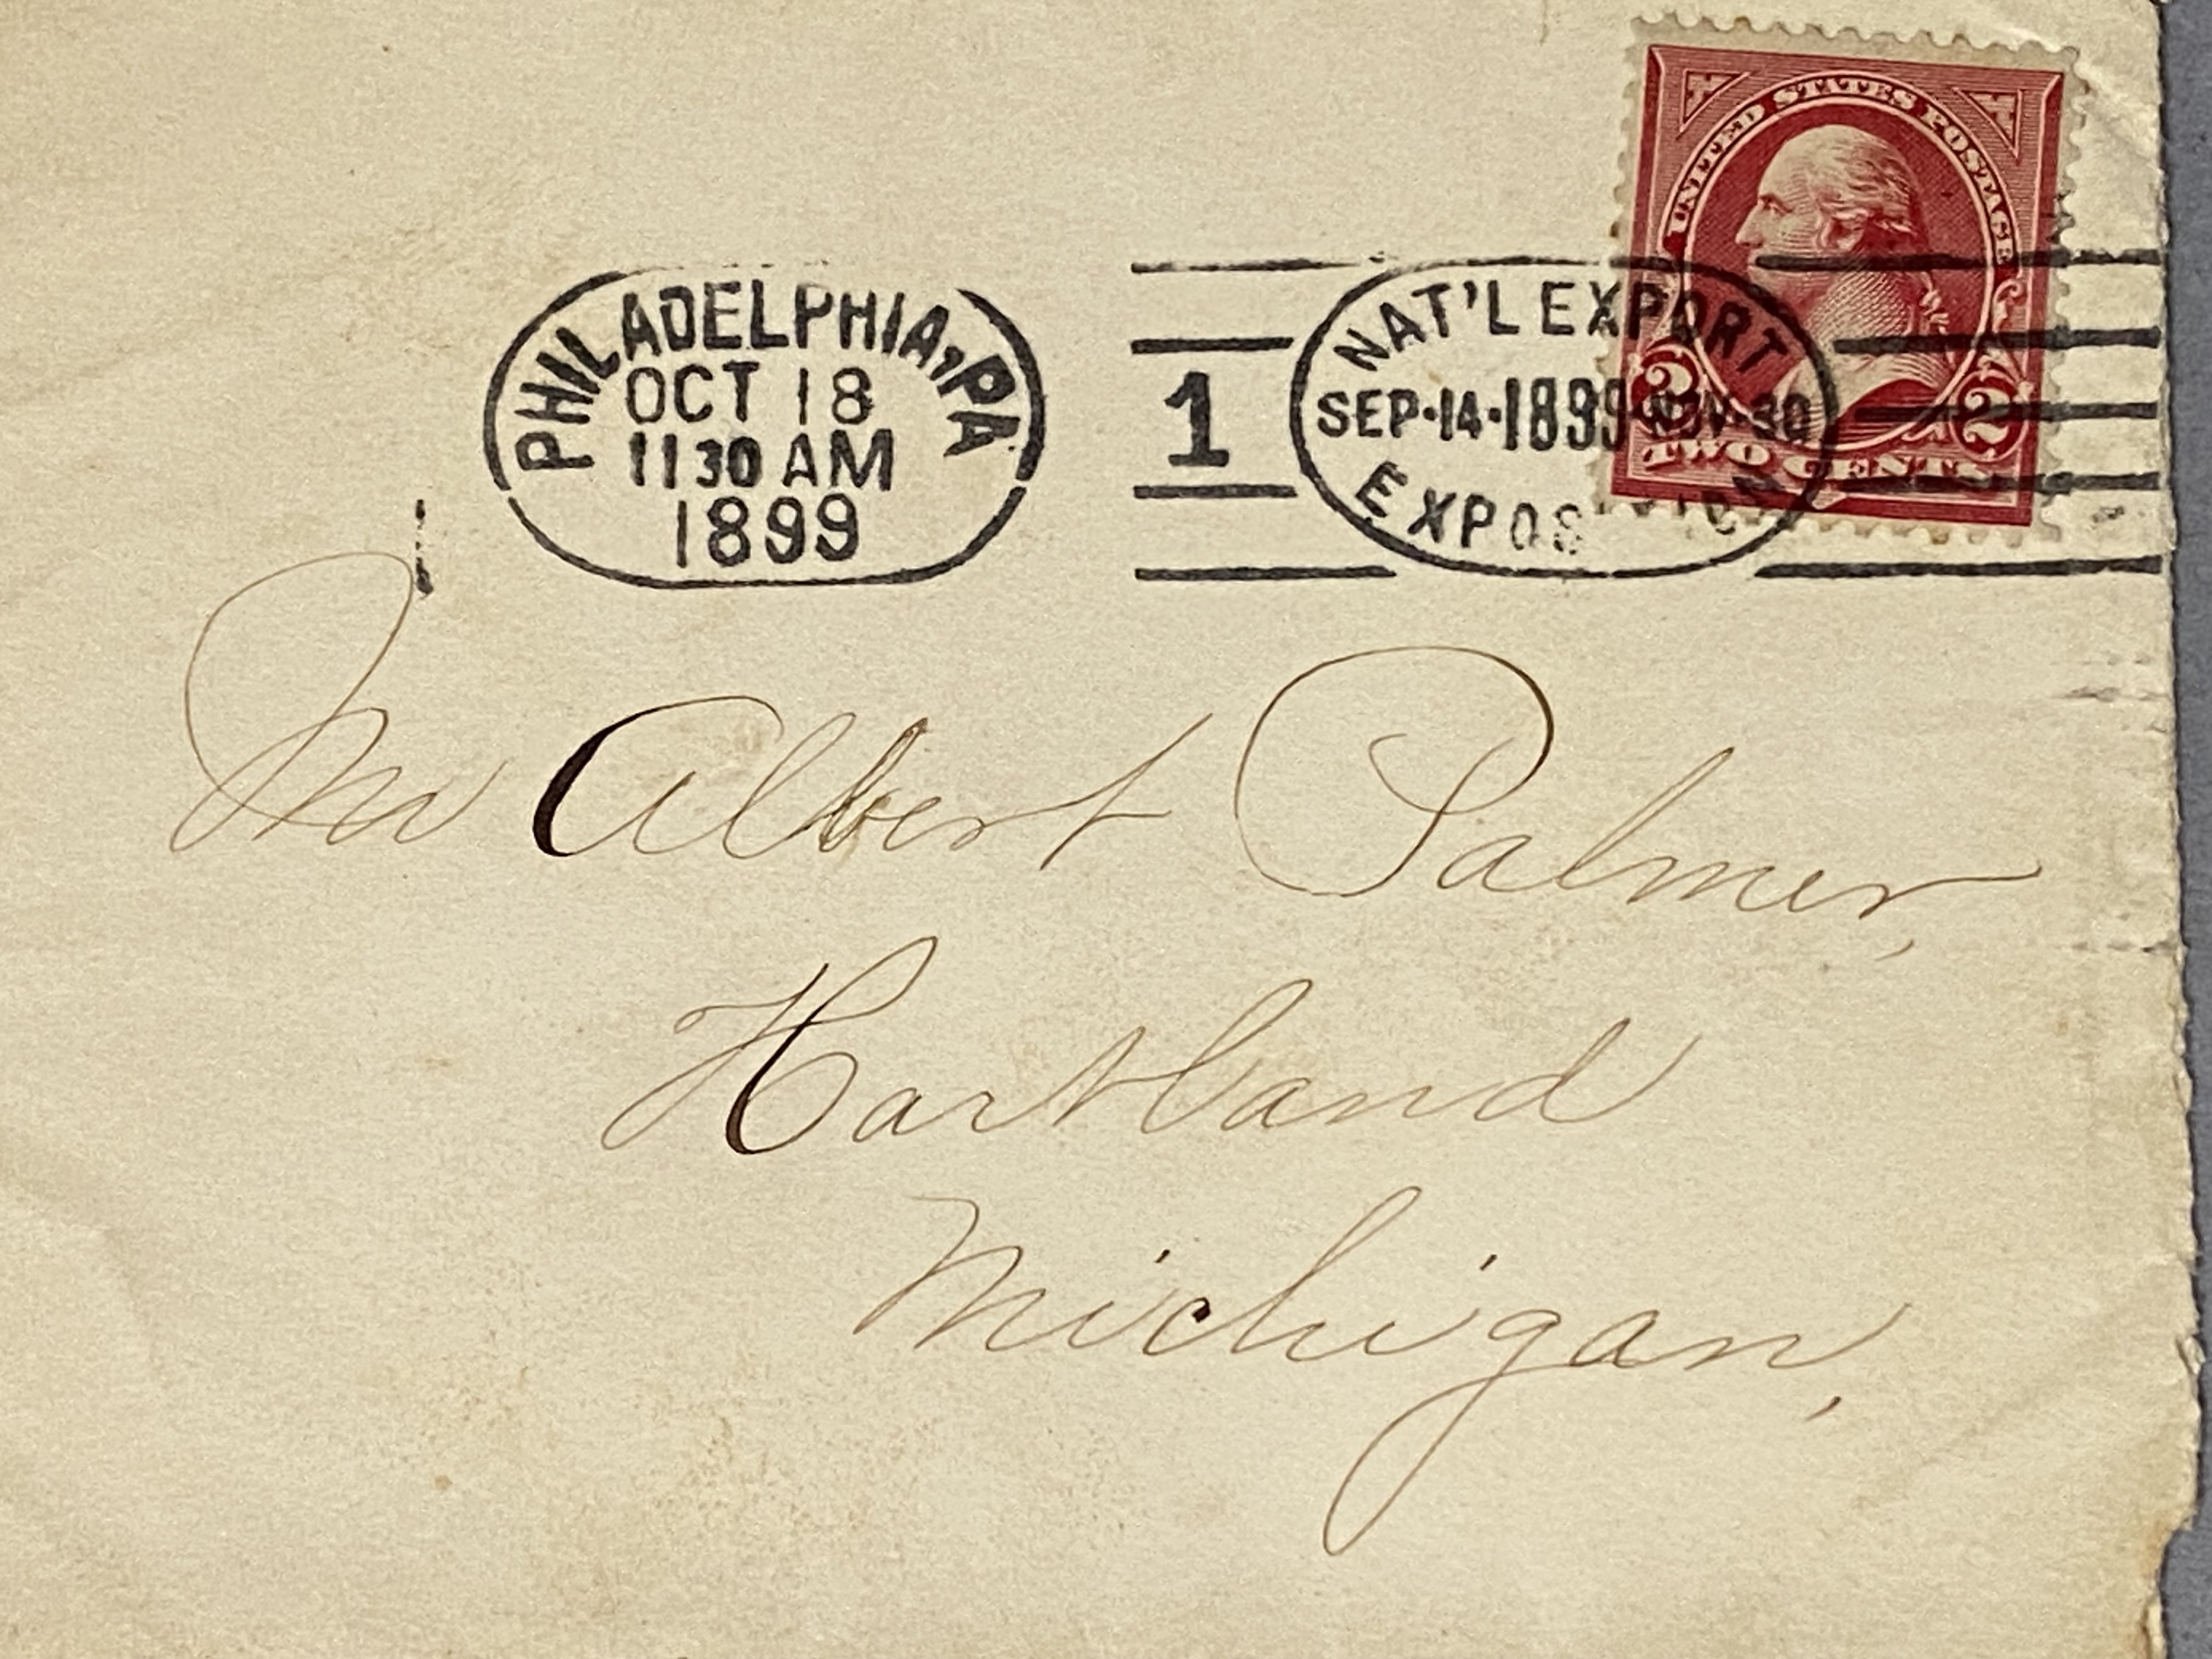 UNITED STATES POSTAGE
2 2
TWO CENTS
PHILADELPHIA, PA
OCT 18
11 30 AM
1899
1
NAT'L EXPORT
SEP·14·1899·NOV·30
EXPOSITION
Mr Albert Palmer,
Hartland
Michigan,